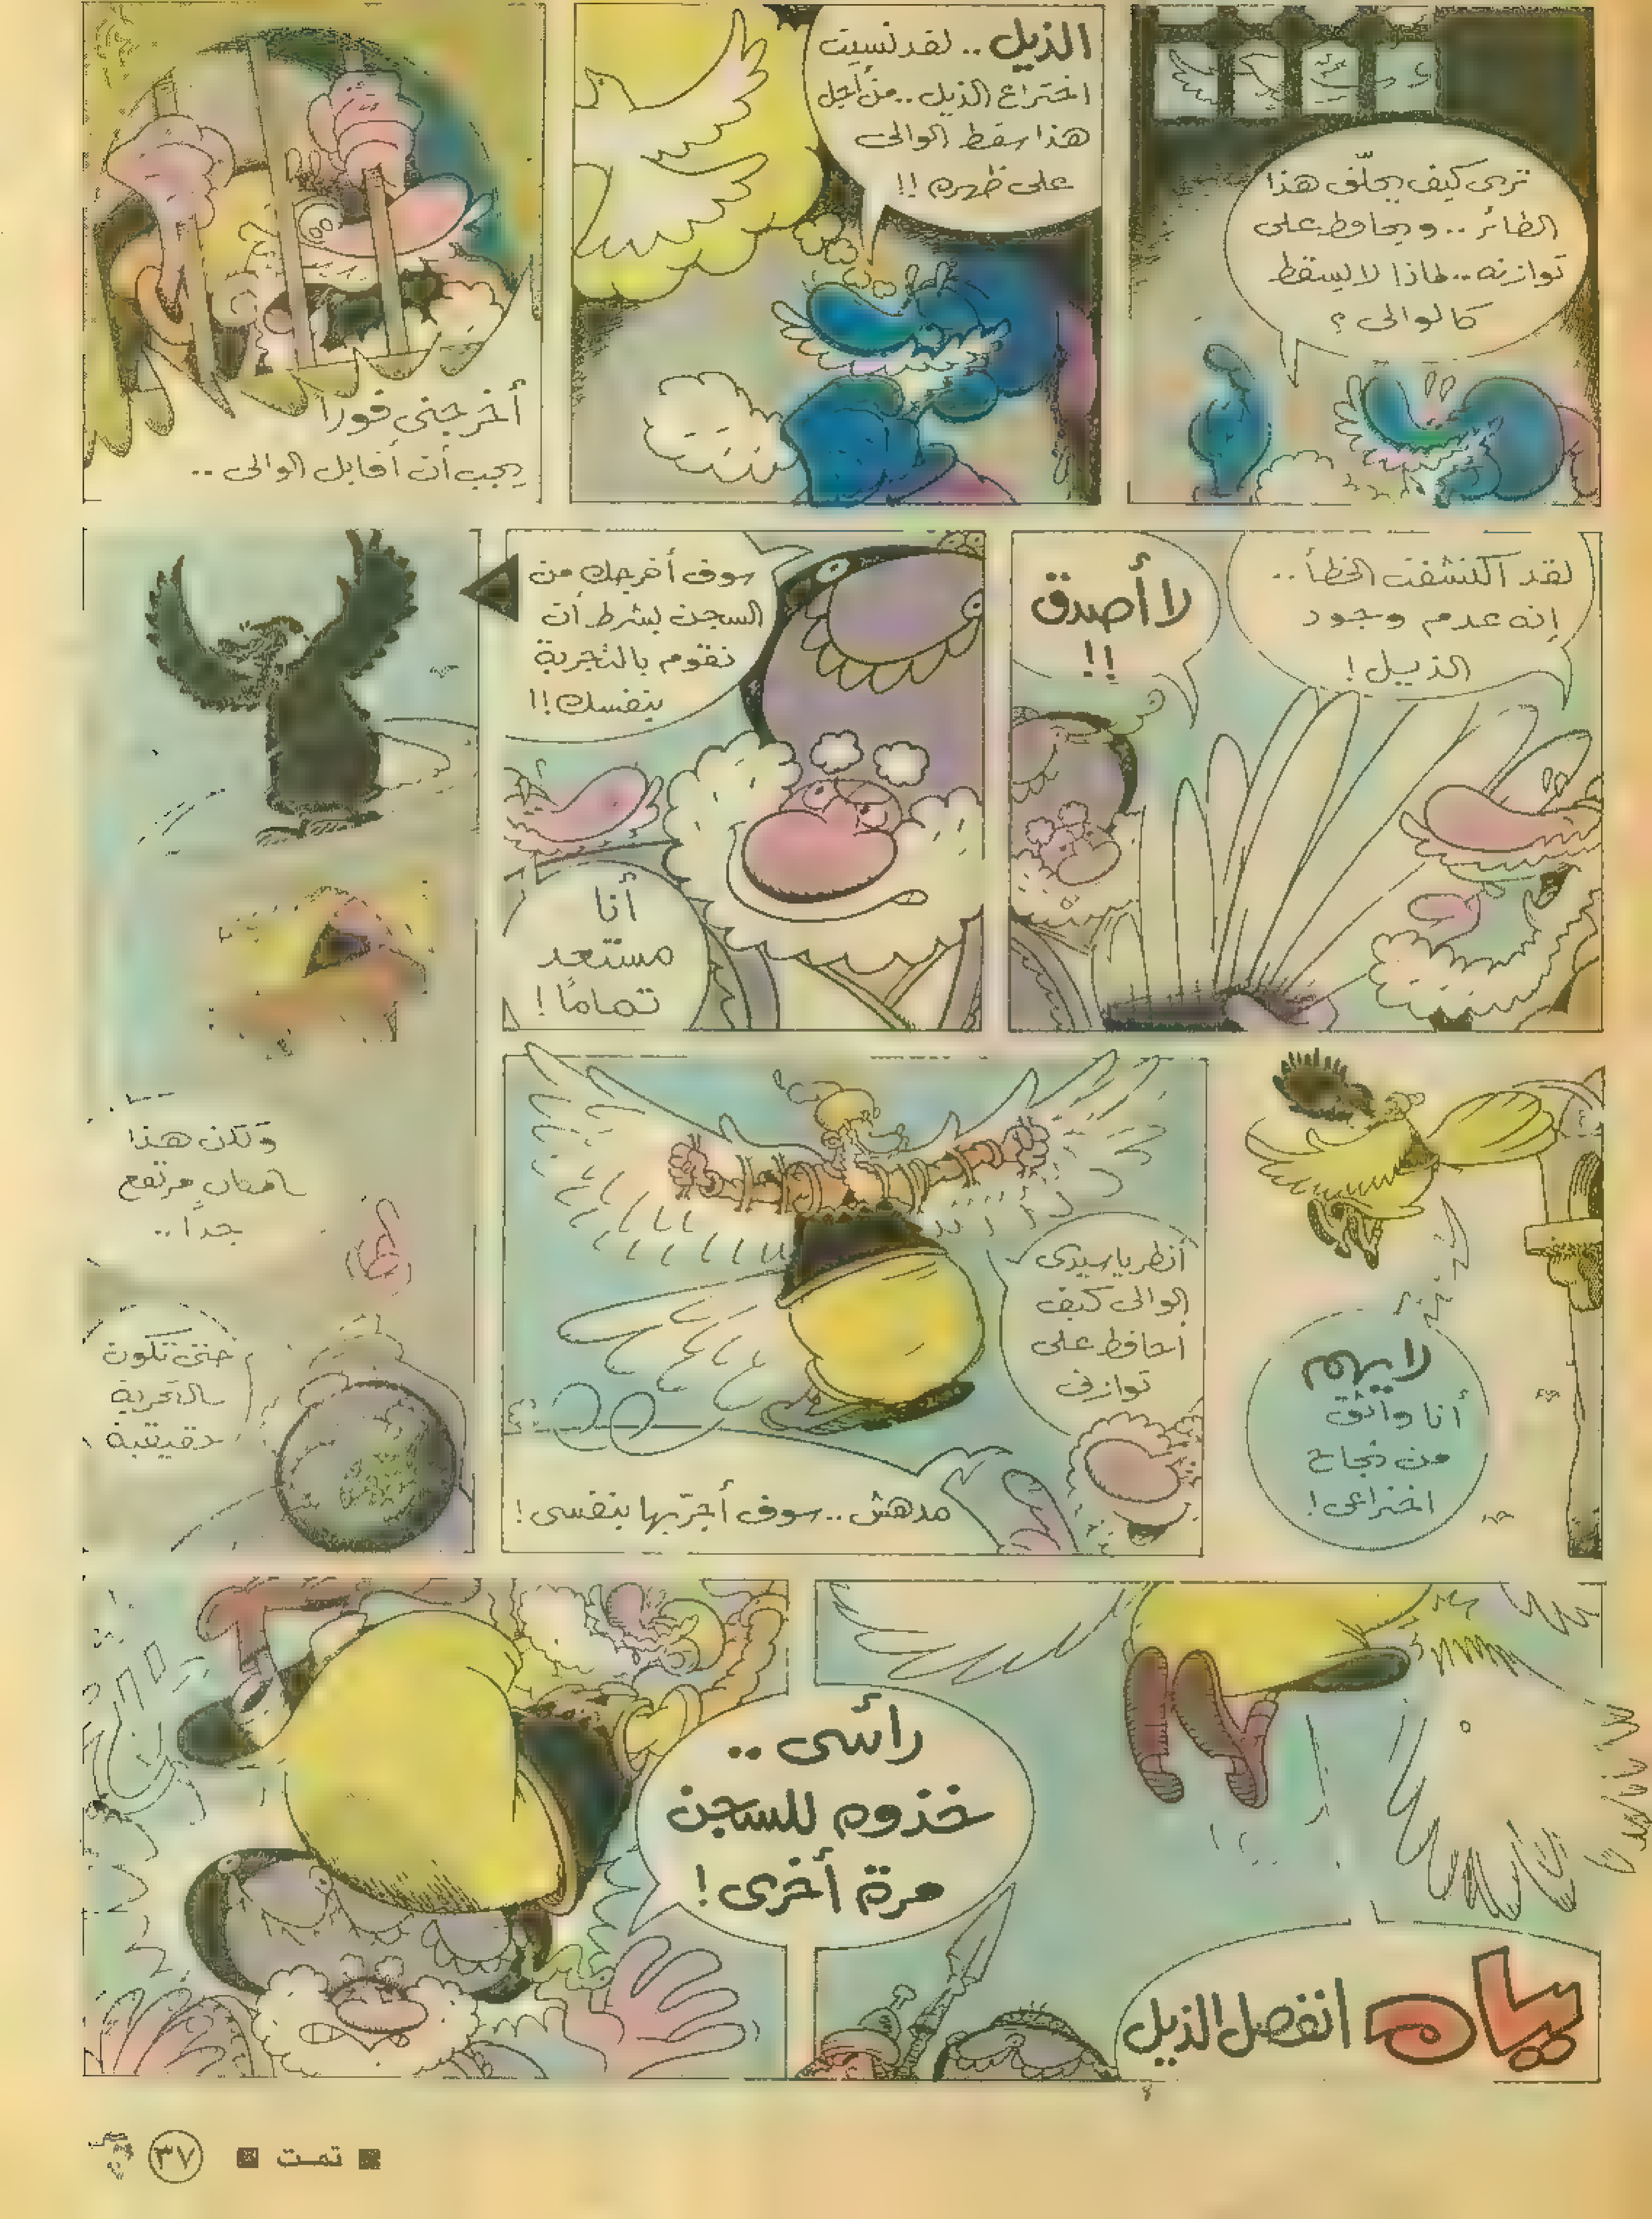 ترى كيف يحلّق هذا
الطائر .. ويحافظ على
توازنه .. لماذا لا يسقط
كالوالى ؟
الذيل .. لقد نسيت
اختراع الذيل .. من أجل
هذا سقط الوالى
على ظهره !!
أخرجنى فورا
يجب أن أقابل الوالى ..
لقد اكتشفت الخطأ ..
إنه عدم وجود
الذيل !
لا أصدق
!!
سوف أخرجك من
السجن بشرط أن
تقوم بالتجربة
بنفسك !!
أنا
مستعد
تمامًا !
ولكن هذا
المكان مرتفع
جدا ..
حتى تكون
التجربة
حقيقية
لا يهم
أنا واثق
من نجاح
اختراعى !
أنظر يا سيدى
الوالى كيف
أحافظ على
توازنى
مدهش .. سوف أجرّبها بنفسى !
ياه انفصل الذيل
رأسى ..
خذوه للسجن
مرة أخرى !
تمت
٣٧